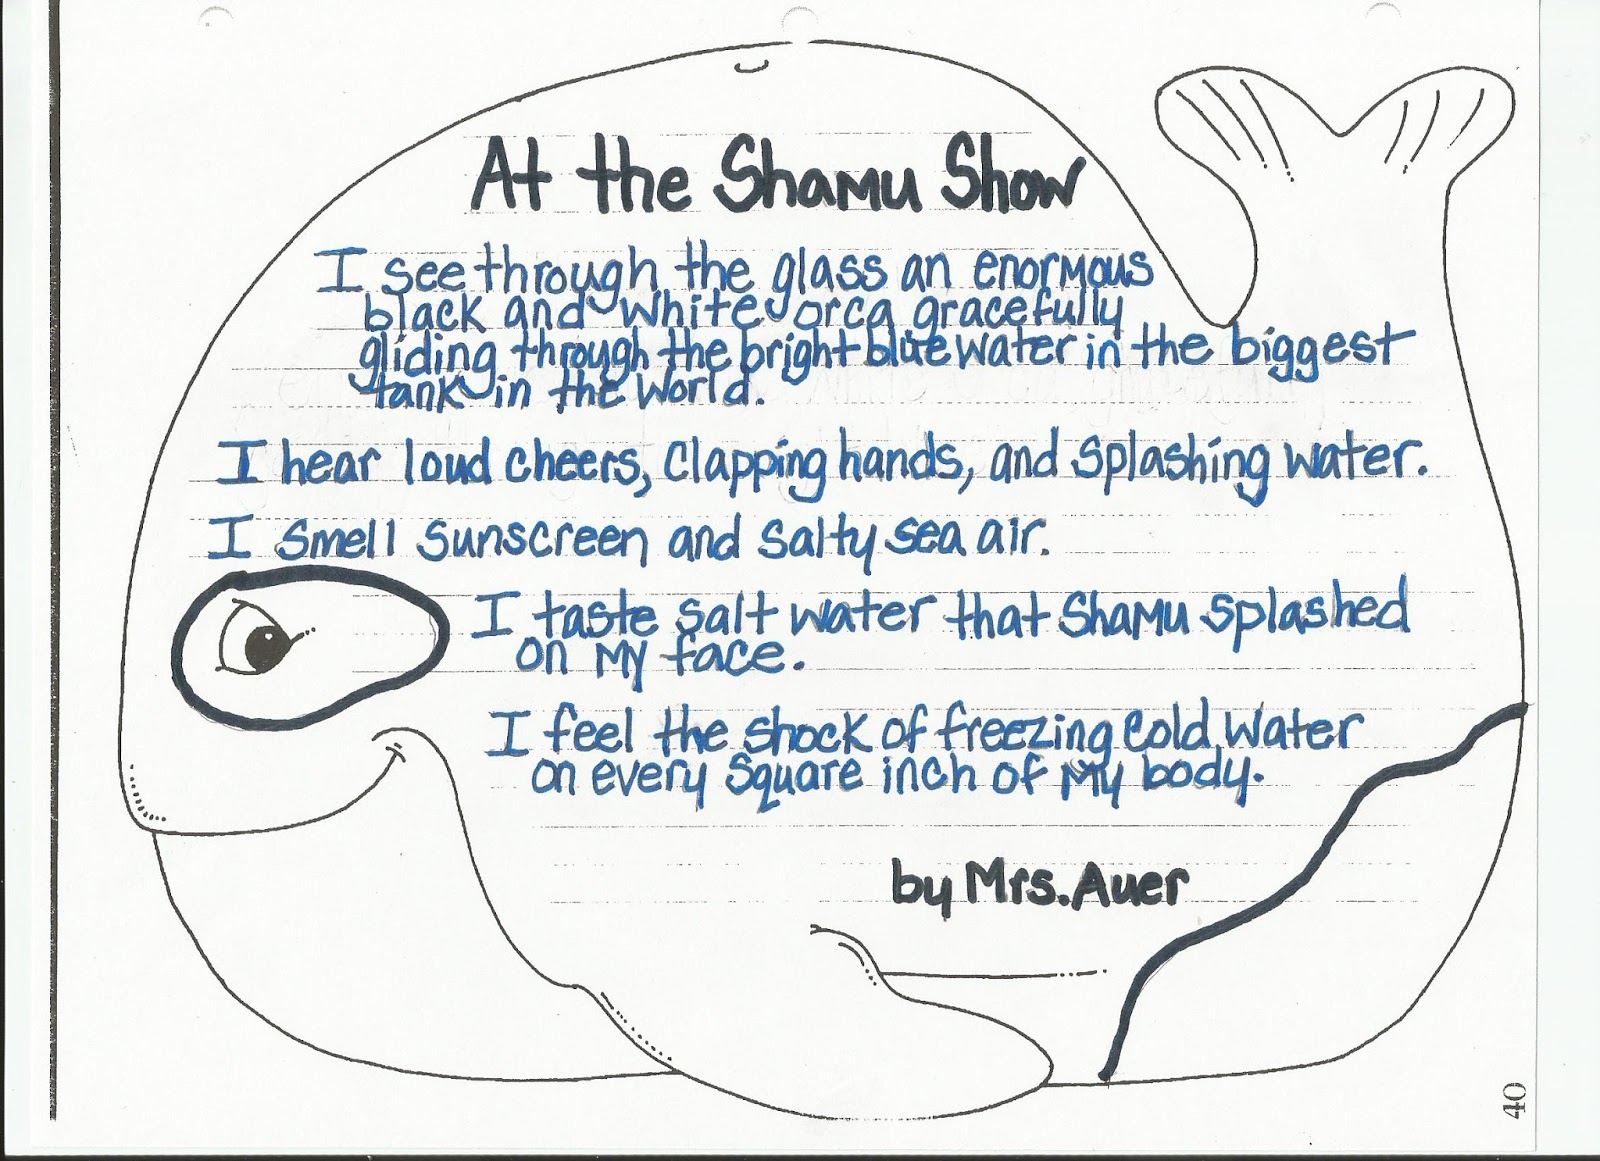 At the Shamu Show
I see through the glass an enormous
black and white orca gracefully
gliding through the bright blue water in the biggest
tank in the world.
I hear loud cheers, clapping hands, and splashing water.
I smell sunscreen and salty sea air.
I taste salt water that Shamu splashed
on my face.
I feel the shock of freezing cold water
on every square inch of my body.
by Mrs. Auer
40